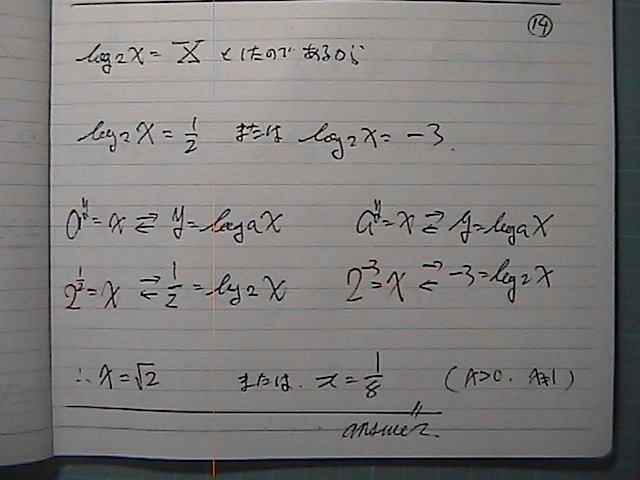 ⑭
log₂x = X としたのであるから
log₂x = 1/2 または log₂x = -3.
a^y = x ⇄ y = logₐx a^y = x ⇄ y = logₐx
2^(1/2) = x ⇄ 1/2 = log₂x 2^(-3) = x ⇄ -3 = log₂x
∴ x = √2 または. x = 1/8 (x>0. x≠1)
answer.